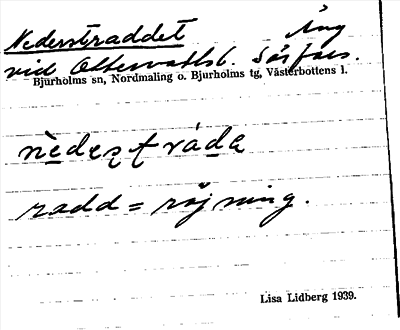 Nederstraddet Äng
vid Ottervattsl. Sörfors.
Bjurholms sn, Nordmaling o. Bjurholms tg, Västerbottens l.
radd = röjning.
Lisa Lidberg 1939.